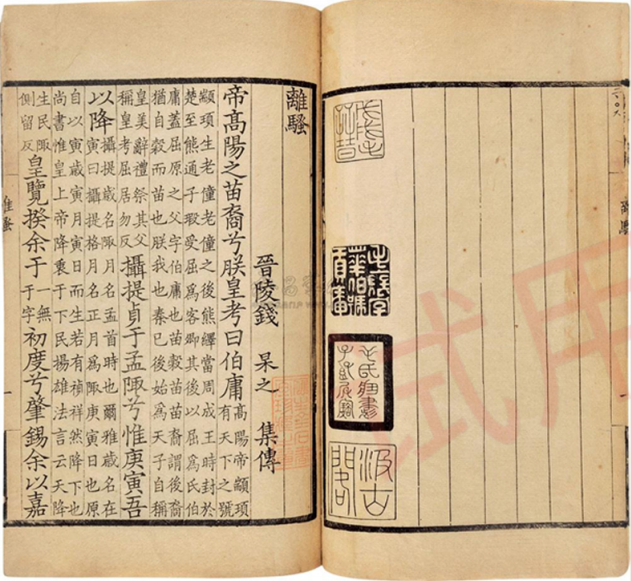 離騷
晉陵錢 杲之 集傳
帝髙陽之苗裔兮朕皇考曰伯庸
髙陽帝顓頊
有天下之號
顓頊生老僮老僮之後熊繹當周成王時封於
楚至熊通子瑕受屈爲客卿其後以屈爲氏伯
庸蓋屈原之父字伯庸也苗穀苗苗裔謂後裔
猶自穀而苗也朕我也秦已後始爲天子自稱
皇美辭禮祭其父
稱皇考屈居勿反
攝提貞于孟陬兮惟庚寅吾
以降
攝提歲名陬月名孟首時也爾雅歲名在
寅曰攝提格月名正月爲陬庚寅日也原
自以寅歲寅月寅日而生若有禎祥然降下也
尚書惟皇上帝降衷于下民揚雄法言云天降
生民陬
側留反
皇覽揆余于
一無
于字
初度兮肇錫余以嘉
汲古閣
試用